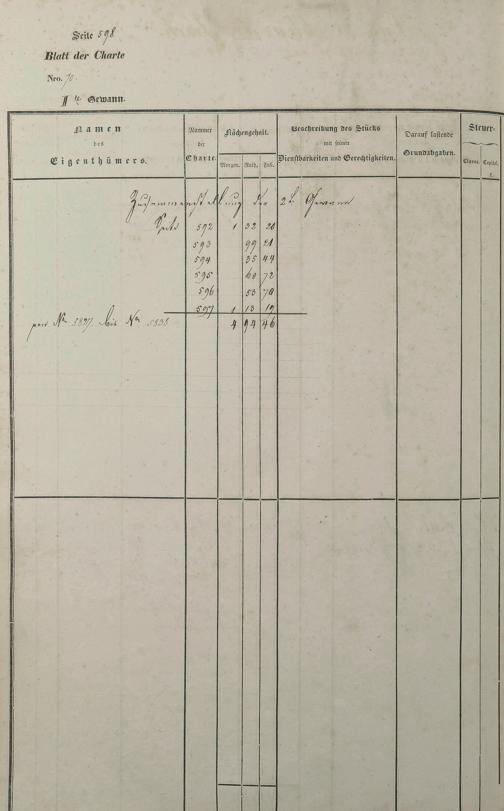 Seite 598
Blatt der Charte
Nro. 70.
II te Gewann.
Namen
des
Eigenthümers.
Nummer
der
Charte.
Flächengehalt.
Morgen. Ruth. Fuß.
Beschreibung des Stücks
mit seinen
Dienstbarkeiten und Gerechtigkeiten.
Darauf haftende
Grundabgaben.
Steuer-
Classe. Capital.
Zusammenstellung der 2t. Gewann
Seite 592 1 32 20
593 99 21
594 35 44
595 60 72
596 53 70
597 1 13 19
4 94 46
bis No